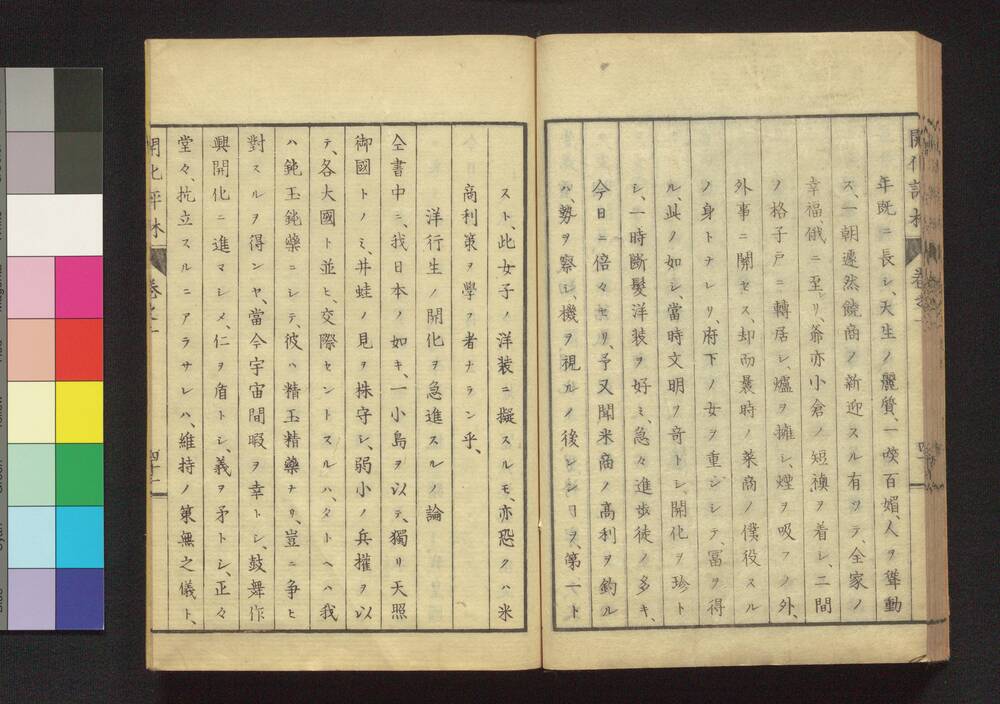 年既ニ長シ、天生ノ麗質、一㗛百媚、人ヲ聳動
ス、一朝遽然饒商ノ新迎スル有ツテ、全家ノ
幸福、俄ニ至レリ、爺亦小倉ノ短襖ヲ着シ、二間
ノ格子戸ニ轉居シ、爐ヲ擁シ、煙ヲ吸フノ外、
外事ニ關セス、却而曩時ノ菜商ノ僕役スル
ノ身トナレリ、府下ノ女ヲ重シシテ、冨ヲ得
ル、此ノ如シ、當時文明ヲ奇トシ、開化ヲ珍ト
シ、一時斷髮洋装ヲ好ミ、急々進歩徒ノ多キ、
今日ニ倍々セリ、予又聞米商ノ高利ヲ釣ル
ハ、勢ヲ察シ、機ヲ視ルノ後シンロヲ、第一ト
スト、此女子ノ洋装ニ擬スルモ、亦恐クハ米
高利策ヲ學フ者ナラン乎、
洋行生ノ開化ヲ急進スルノ論
仝書中ニ、我日本ノ如キ、一小島ヲ以テ、獨リ天照
御國トノミ、井蛙ノ見ヲ株守シ、弱小ノ兵權ヲ以
テ、各大國ト並ヒ、交際セントスルハ、タトヘハ我
ハ鈍玉鈍藥ニシテ、彼ハ精玉精藥ナリ、豈ニ争ヒ
對スルヲ得ンヤ、當今宇宙間暇ヲ幸トシ、鼓舞作
興開化ニ進マシメ、仁ヲ盾トシ、義ヲ矛トシ、正々
堂々、抗立スルニアラサレハ、維持ノ策無之儀ト、
開化評林
卷之一
四十一